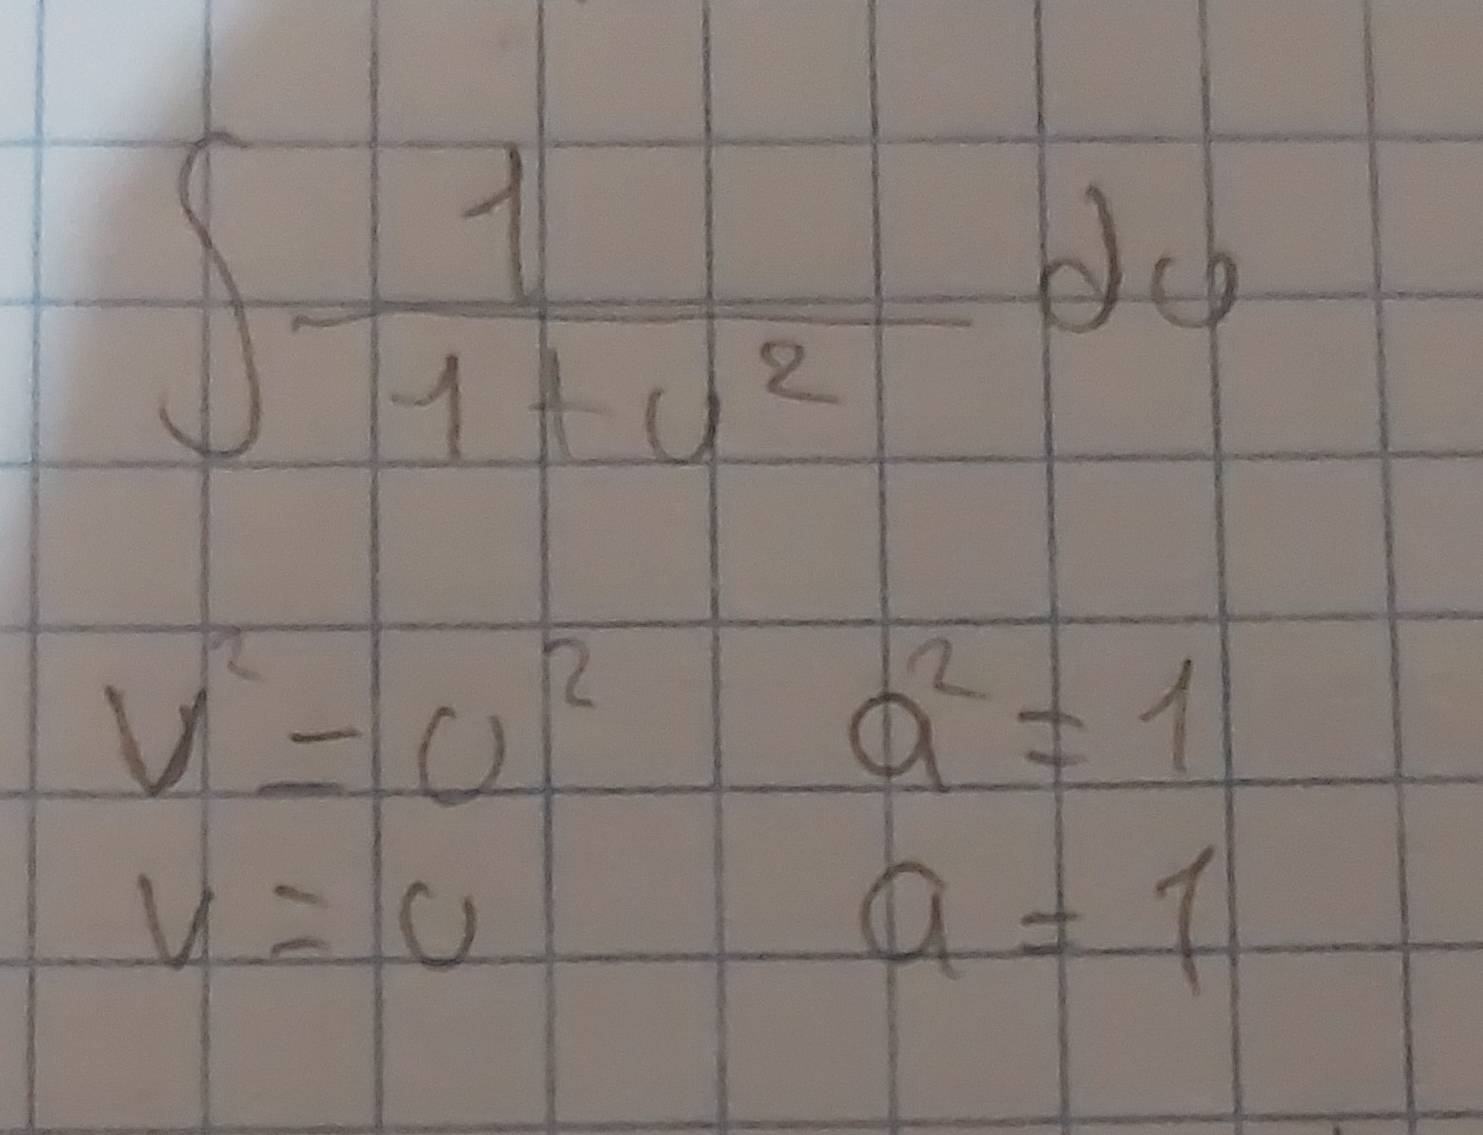 ∫ 1/(1+u²) du
v² = u² a² = 1
v = u a = 1